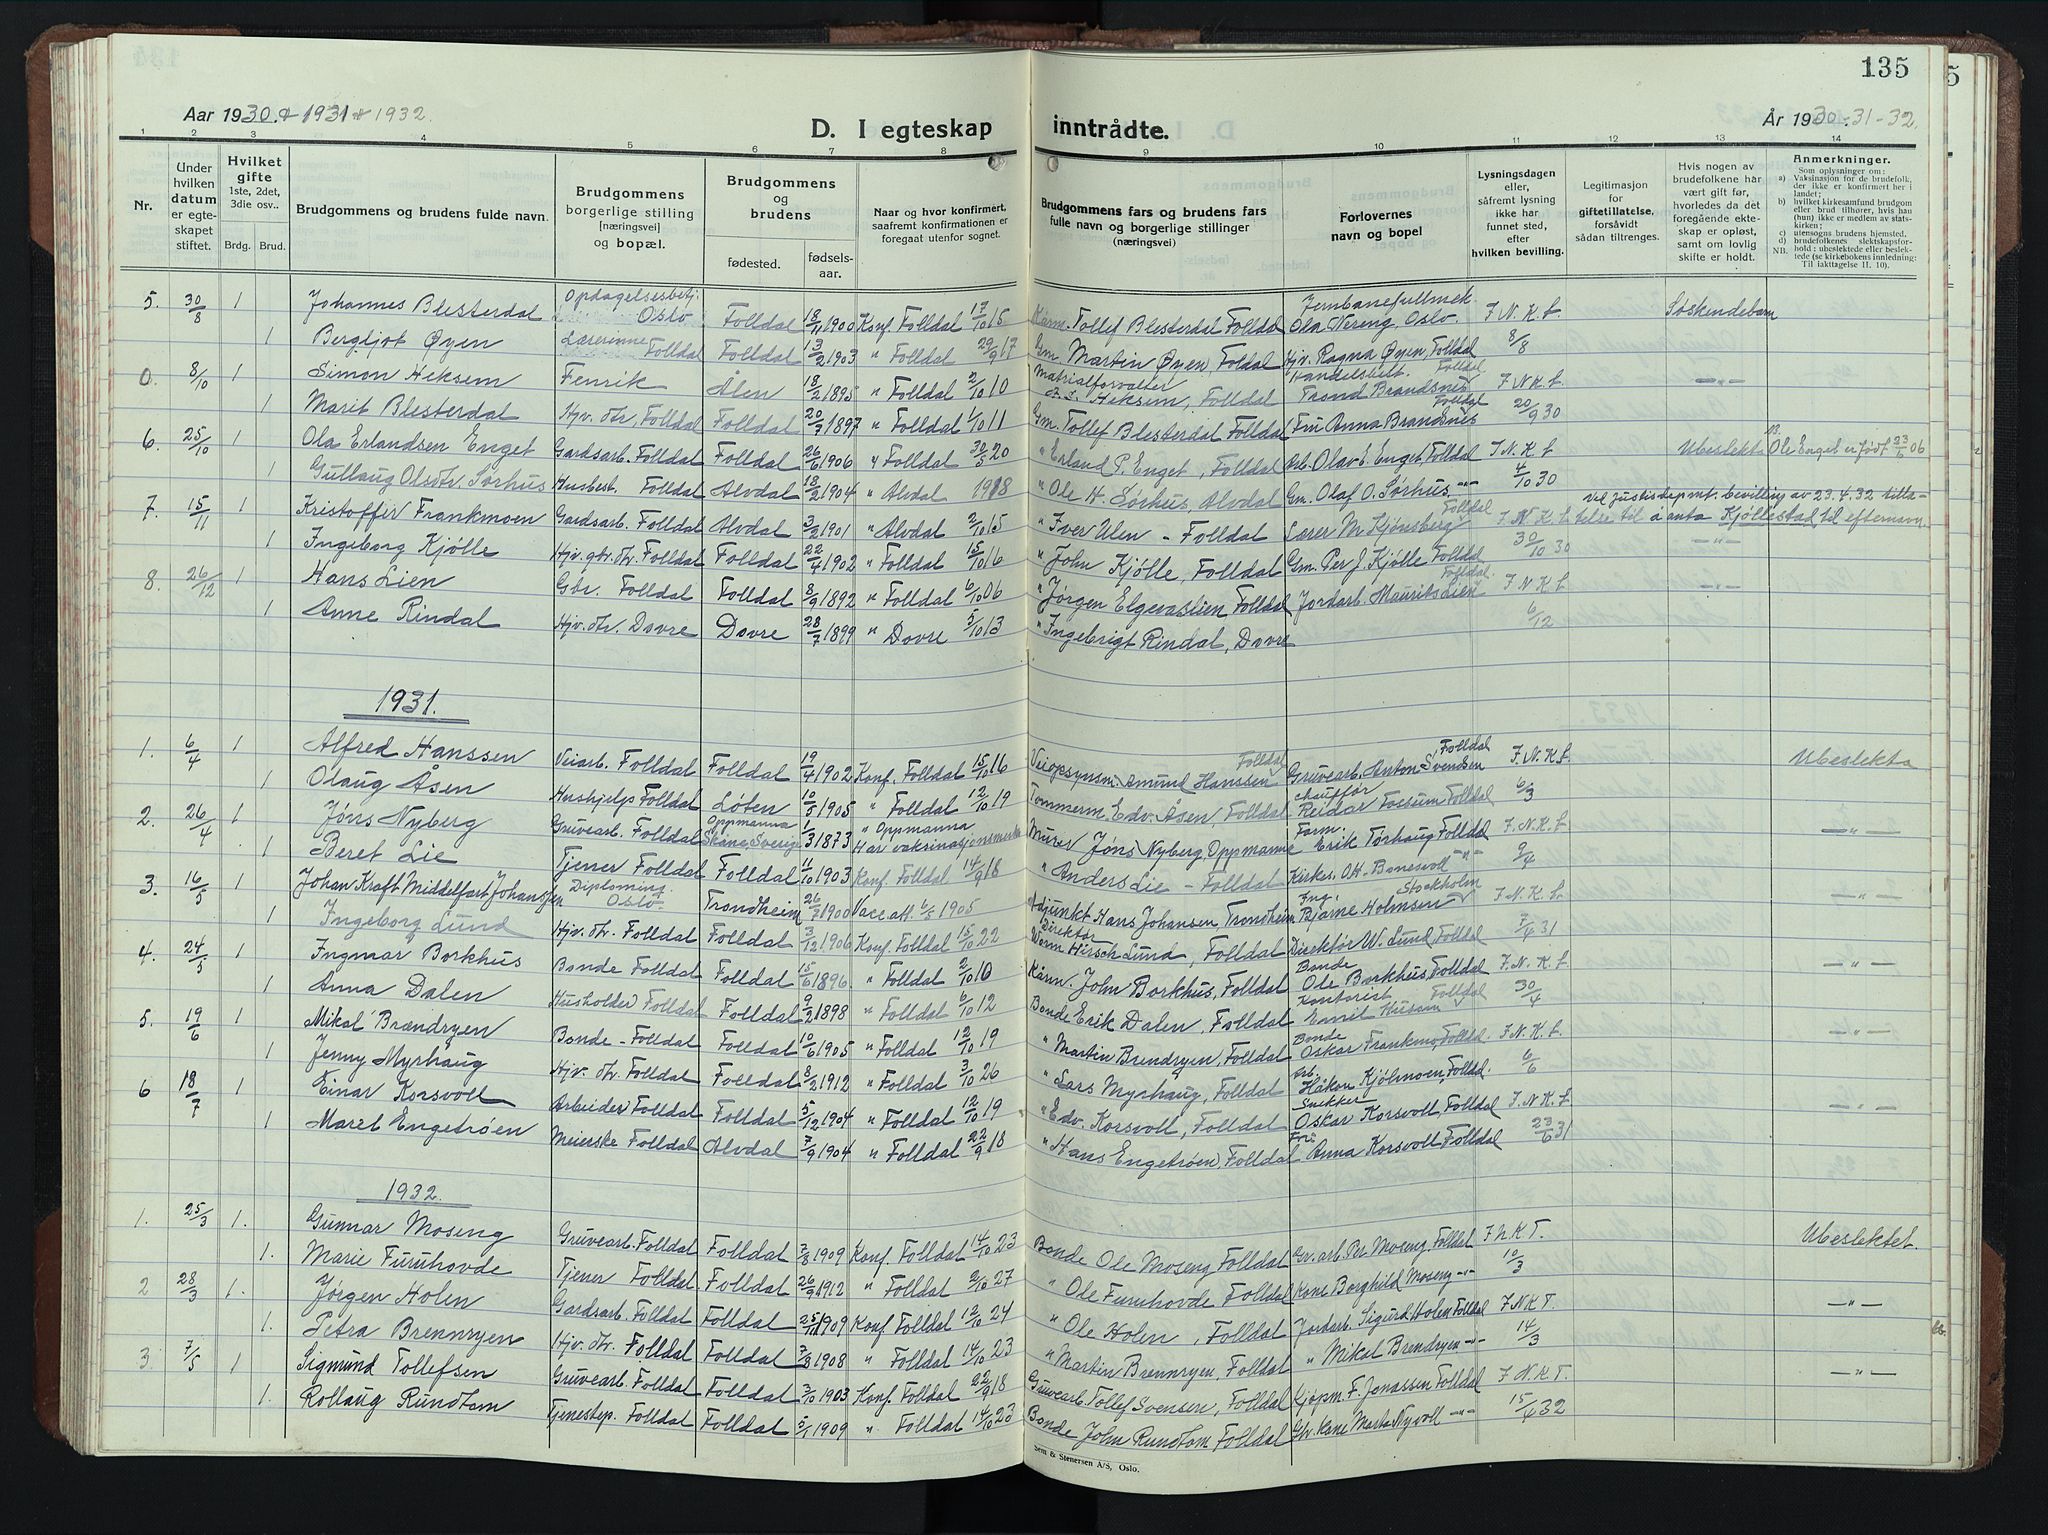 135
Aar 1930. & 1931 & 1932.
D. I egteskap inntrådte.
År 1930-31-32.
1 2 3 4 5 6 7 8 9 10 11 12 13 14
Nr.
Under hvilken datum er egteskapet stiftet.
Hvilket gifte 1ste, 2det, 3die osv.. Brdg. Brud.
Brudgommens og brudens fulde navn.
Brudgommens borgerlige stilling [næringsvei] og bopæl.
Brudgommens og brudens fødested. fødsels-aar.
Naar og hvor konfirmert, saafremt konfirmationen er foregaat utenfor sognet.
Brudgommens fars og brudens fars fulle navn og borgerlige stillinger (næringsvei)
Forlovernes navn og bopel
Lysningsdagen eller, såfremt lysning ikke har funnet sted, efter hvilken bevilling.
Legitimasjon for giftetillatelse, forsåvidt sådan tiltrenges.
Hvis nogen av brudefolkene har vært gift før, hvorledes da det foregående ekteskap er opløst, samt om lovlig skifte er holdt.
Anmerkninger. Som oplysninger om: a) Vaksinasjon for de brudefolk, der ikke er konfirmert her i landet; b) hvilket kirkesamfund brudgom eller brud tilhører, hvis hau (hun) ikke er medlem av statskirken; c) utensogns brudens hjemsted. d) brudefolkenes slektskapsforhold: ubeslektede eller beslektede (se kirkebokens innledning: NB. Til iakttagelse II. 10).
5. 30/8 1 Johannes Blesterdal Opdagelsesbetj. Oslo Folldal 18/11 1900 Konf. Folldal 17/10 15 Kårm. Tollef Blesterdal Folldal Jernbanefullmek. Ola Vereng, Oslo. F. N. K. L. Søskendebarn
1 Bergljot Øyen Lærerinne Folldal Folldal 13/2 1903 " Folldal 29/9 17 Gm. Martin Øyen, Foldal Hjv. Ragna Øyen, Folldal 8/8
0. 8/10 1 Simon Heksem Fenrik Ålen 18/2 1895 " Folldal 2/10 10 Matrialforvalter Heksem, Folldal Handelsbest. Trond Brandsnes Folldal F. N. K. L. — " —
1 Marit Blesterdal Hjv. dtr. Folldal Folldal 20/7 1897 " Folldal 1/10 11 Gm. Tollef Blesterdal Folldal Fru Anna Brandsnes Folldal 20/9 30
6. 25/10 1 Ola Erlandsen Enget Gardsarb. Folldal Folldal 26/6 1906 " Folldal 30/5 20 " Erland P. Enget, Folldal Arb. Olav E. Enget, Folldal F. N. K. L Ubeslekta Ole Enget er født 23/6 06
1 Gullaug Olsdtr. Sørhus Husbest. Folldal Alvdal 18/2 1904 " Alvdal 1918 " Ole H. Sørhus, Alvdal Gm. Olaf O. Sørhus — " — 4/10 30
7. 15/11 1 Kristoffer Frankmoen Gardsarb. Folldal Alvdal 3/2 1901 " Alvdal 2/10 15 " Iver Ulen - Folldal Lærer M. Kjønsberg Folldal F. N. K. L. Vel Justisdepmt. bevilling av 23.4.32 tillatelse til å anta Kjøllestad til efternavn.
1 Ingeborg Kjølle Hjv. gbr. dtr. Folldal Folldal 22/4 1902 " Folldal 15/10 16 " John Kjølle, Folldal Gm. Per J. Kjølle Folldal 30/10 30 — " —
8. 26/12 1 Hans Lien Gbr. Folldal Folldal 8/9 1892 " Folldal 6/10 06 " Jørgen Elgevaslien Folldal Jordarb. Maurits Lien Folldal. F. N. K. L. — " —
1 Anne Rindal Hjv. dtr. Dovre Dovre 28/7 1899 " Dovre 5/10 13 " Ingebrigt Rindal, Dovre 6/12
1931.
1. 6/4 1 Alfred Hanssen Veiarb. Folldal Folldal 19/4 1902 Konf. Folldal 15/10 16 Veiopsynsm. Amund Hanssen Folldal Gruvearb. Anton Svendsen Folldal F. N. K. L. Ubeslekta
1 Olaug Åsen Hushjelp Folldal Løten 10/5 1905 " Folldal 12/10 19 Tømmerm. Edv. Åsen, Folldal chauffør Reidar Fossum Folldal 6/3
2. 26/4 1 Jøns Nyberg Gruvearb. Folldal Oppmanna Skåne, Sverige 1/3 1873 " Oppmanna Har vaksinasjonsmerke Murer Jøns Nyberg Oppmanna Farm. Erik Tørhaug Folldal F. N. K. L. — " —
1 Beret Lie Tjener Folldal Folldal 11/10 1903 Konf. Folldal 14/9 18 " Anders Lie - Folldal Kirkes. O. H. Bonesvoll — " — 9/4
3. 16/5 1 Johan Kraft Middelfart Johansen Diploming. Oslo. Trondheim 26/7 1900 Vacc. att. 6/5 1905 Adjunkt Hans Johansen Trondheim Ing. Bjarne Holmsen Stockholm F. N. K. L. — " —
1 Ingeborg Lund Hjv. dtr. Folldal Folldal 3/12 1906 Konf. Folldal 15/10 22 Direktør Worm Hirsch Lund, Folldal Direktør W. Lund, Folldal 3/4 31
4. 24/5 1 Ingmar Borkhus Bonde Folldal Folldal 15/6 1896 " Folldal 2/10 10 Kårm. John Borkhus, Folldal Bonde Ole Borkhus, Folldal F. N. K. L. — " —
1 Anna Dalen Husholder Folldal Folldal 9/2 1898 " Folldal 6/10 12 Bonde Erik Dalen, Folldal Kontorist Emil Husum Folldal 30/4
5. 19/6 1 Mikal Brændryen Bonde - Folldal Folldal 10/6 1905 " Folldal 12/10 19 " Martin Brendryen, Folldal Bonde Oskar Frankmo, Folldal. F. N. K. L. — " —
1 Jenny Myrhaug Hjv. dtr. Folldal Folldal 8/2 1912 " Folldal 3/10 26 " Lars Myrhaug, Folldal Arb. Håkon Kjølmoen, Folldal. 6/6
6 18/7 1 Einar Korsvoll Arbeider Folldal Folldal 5/12 1904 " Folldal 12/10 19 " Edv. Korsvoll, Folldal Snekker Oskar Korsvoll, Folldal F. N. K. L. — " —
1 Maret Engetrøen Meierske Folldal Alvdal 7/9 1904 " Folldal 22/9 18 " Hans Engetrøen, Folldal Frk. Anna Korsvoll Folldal 23/6 31
1932.
1. 25/3 1. Gunnar Moseng Gruvearb. Folldal Folldal 7/8 1909 Konf. Folldal 14/10 23 Bonde Ole Moseng Folldal Gr. arb. Per Moseng, Folldal F. N. K. T. Ubeslektet.
1. Marie Furuhovde Tjener Folldal Folldal 26/9 1912 " Folldal 2/10 27 " Ole Furuhovde Folldal Kone Borghild Moseng — " — 10/3
2 28/3 1. Jørgen Holen Gardsarb. Folldal Folldal 25/11 1909 Konf. Folldal 12/10 24 " Ole Holen, Folldal Jordarb. Sigurd Holen Folldal F. N. K. T. — " —
1. Petra Brennryen Hjv. dtr. Folldal Folldal 7/8 1908 " Folldal 14/10 23 " Martin Brennryen, Folldal " Mikal Brendryen — " — 14/3
3 7/5 1 Sigmund Tollefsen Gruvearb. Folldal Folldal 3/10 1903 Konf. Folldal 22/9 18 Gruvearb. Tollef Svensen, Folldal Kjøpm. F. Jonassen Folldal F. N. K. T. — " —
1. Rollaug Rundtom Tjenestep. Folldal Folldal 5/1 1909 " Folldal 14/10 23 Bonde John Rundtom Folldal Gbr. Kone Marta Nyvoll — " — 15/4 32
& Stenersen A/S, Oslo.